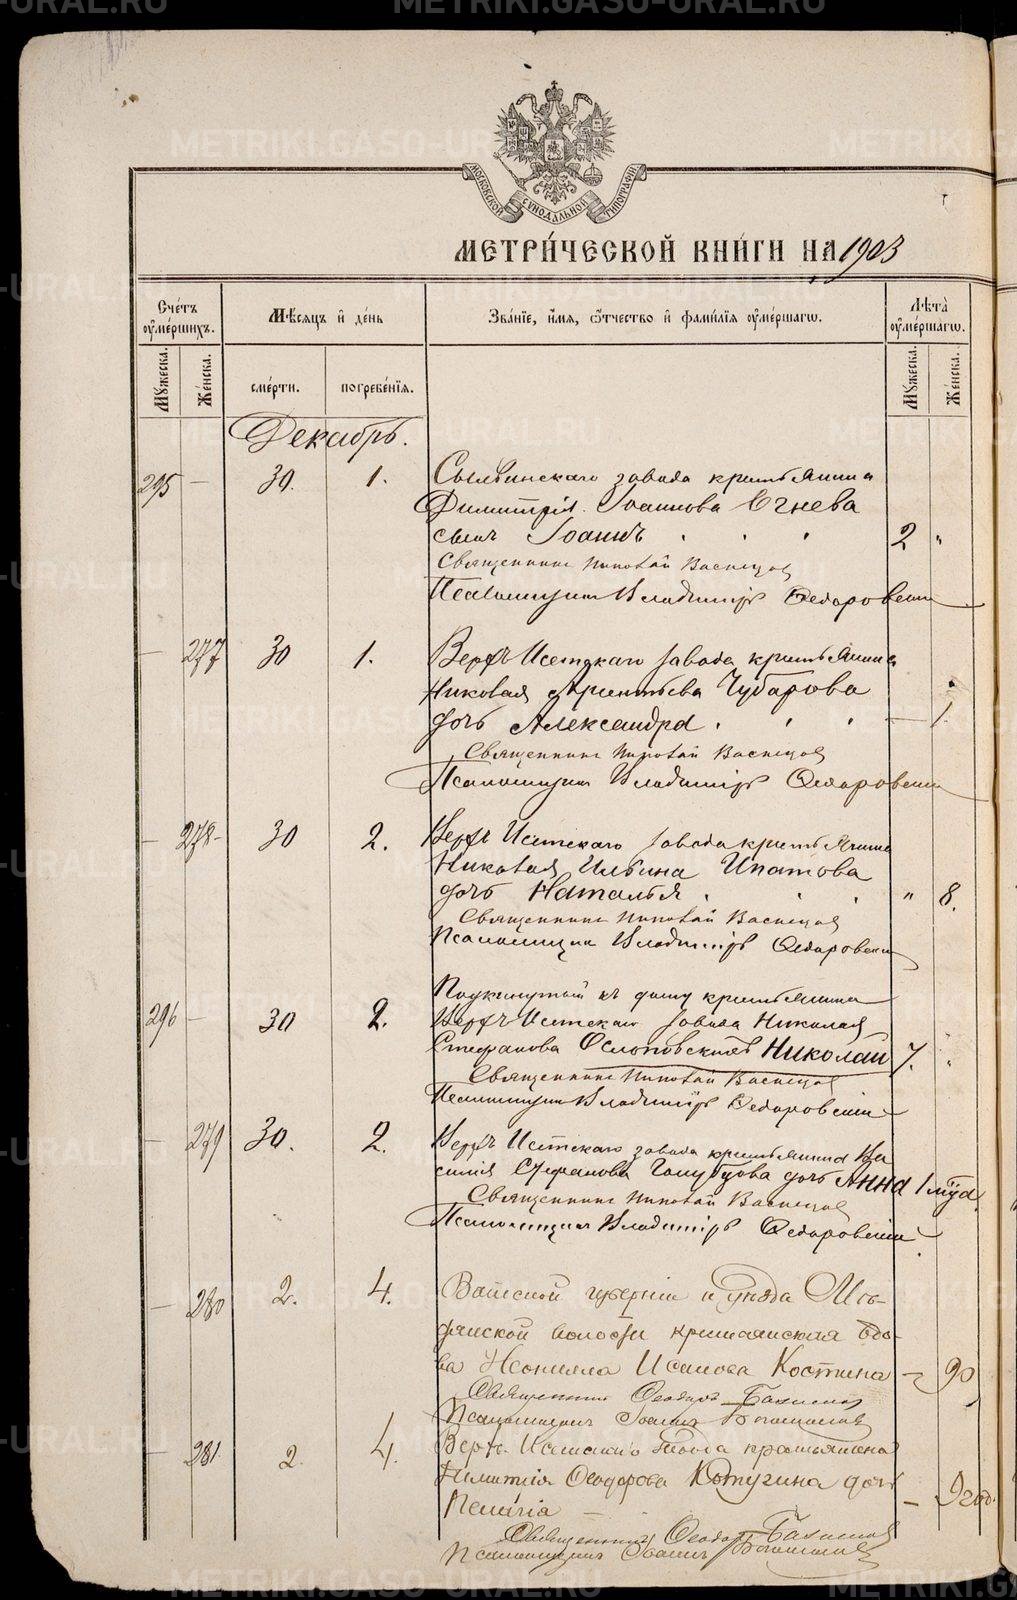 METRIKI.GASO-URAL.RU
МОСКОВСКОЙ СУНОДАЛЬНОЙ ТИПОГРАФІИ
МЕТРИ́ЧЕСКОЙ КНИ́ГИ НА 1903
Сче́тъ ѹ҆ме́ршихъ. Мѣ́сяцъ и҆ де́нь Зва́нїе, и҆́мя, ѻ҆́тчество и҆ фамѝлїя ѹ҆ме́ршагѡ. Лѣта̀ ѹ҆ме́ршагѡ.
Мꙋ́жеска. Же́нска. сме́рти. погребе́нїя. Мꙋ́жеска. Же́нска.
Декабрь.
295 — 30. 1. Сылвинскаго завода крестьянина
Димитрія Іоаннова Огнева
сынъ Іоаннъ 2 "
Священникъ Николай Васнецов
Псаломщикъ Владиміръ Ѳедоровскій
— 277 30 1. Верхъ Исетскаго завода крестьянина
Николая Арентьева Чубарова
дочь Александра — 1.
Священникъ Николай Васнецов
Псаломщикъ Владиміръ Ѳедоровскій
— 278 30 2. Верхъ Исетскаго завода крестьянина
Николая Ильина Ипатова
дочь Наталья " 8.
Священникъ Николай Васнецов
Псаломщикъ Владиміръ Ѳедоровскій
296 — 30 2. Подкинутый къ дому крестьянина
Верхъ-Исетскаго завода Николая
Стефанова Ослоповскихъ Николай 7. "
Священникъ Николай Васнецов
Псаломщикъ Владиміръ Ѳедоровскій
— 279 30. 2. Верхъ Исетскаго завода крестьянина Ва
силія Стефанова Голубцова дочь Анна 1 года
Священникъ Николай Васнецов
Псаломщикъ Владиміръ Ѳедоровскій
— 280 2. 4. Вятской губерніи и уѣзда
волости крестьянская вдо-
ва Неонилла Исакова Костина — 90
Священникъ Ѳеодоръ
Псаломщикъ Іоаннъ
— 281 2. 4. Верхъ-Исетскаго завода крестьянина
Димитрія Ѳеодорова Котугина дочь
Пелагія — 9 год.
Священникъ Ѳеодоръ
Псаломщикъ Іоаннъ